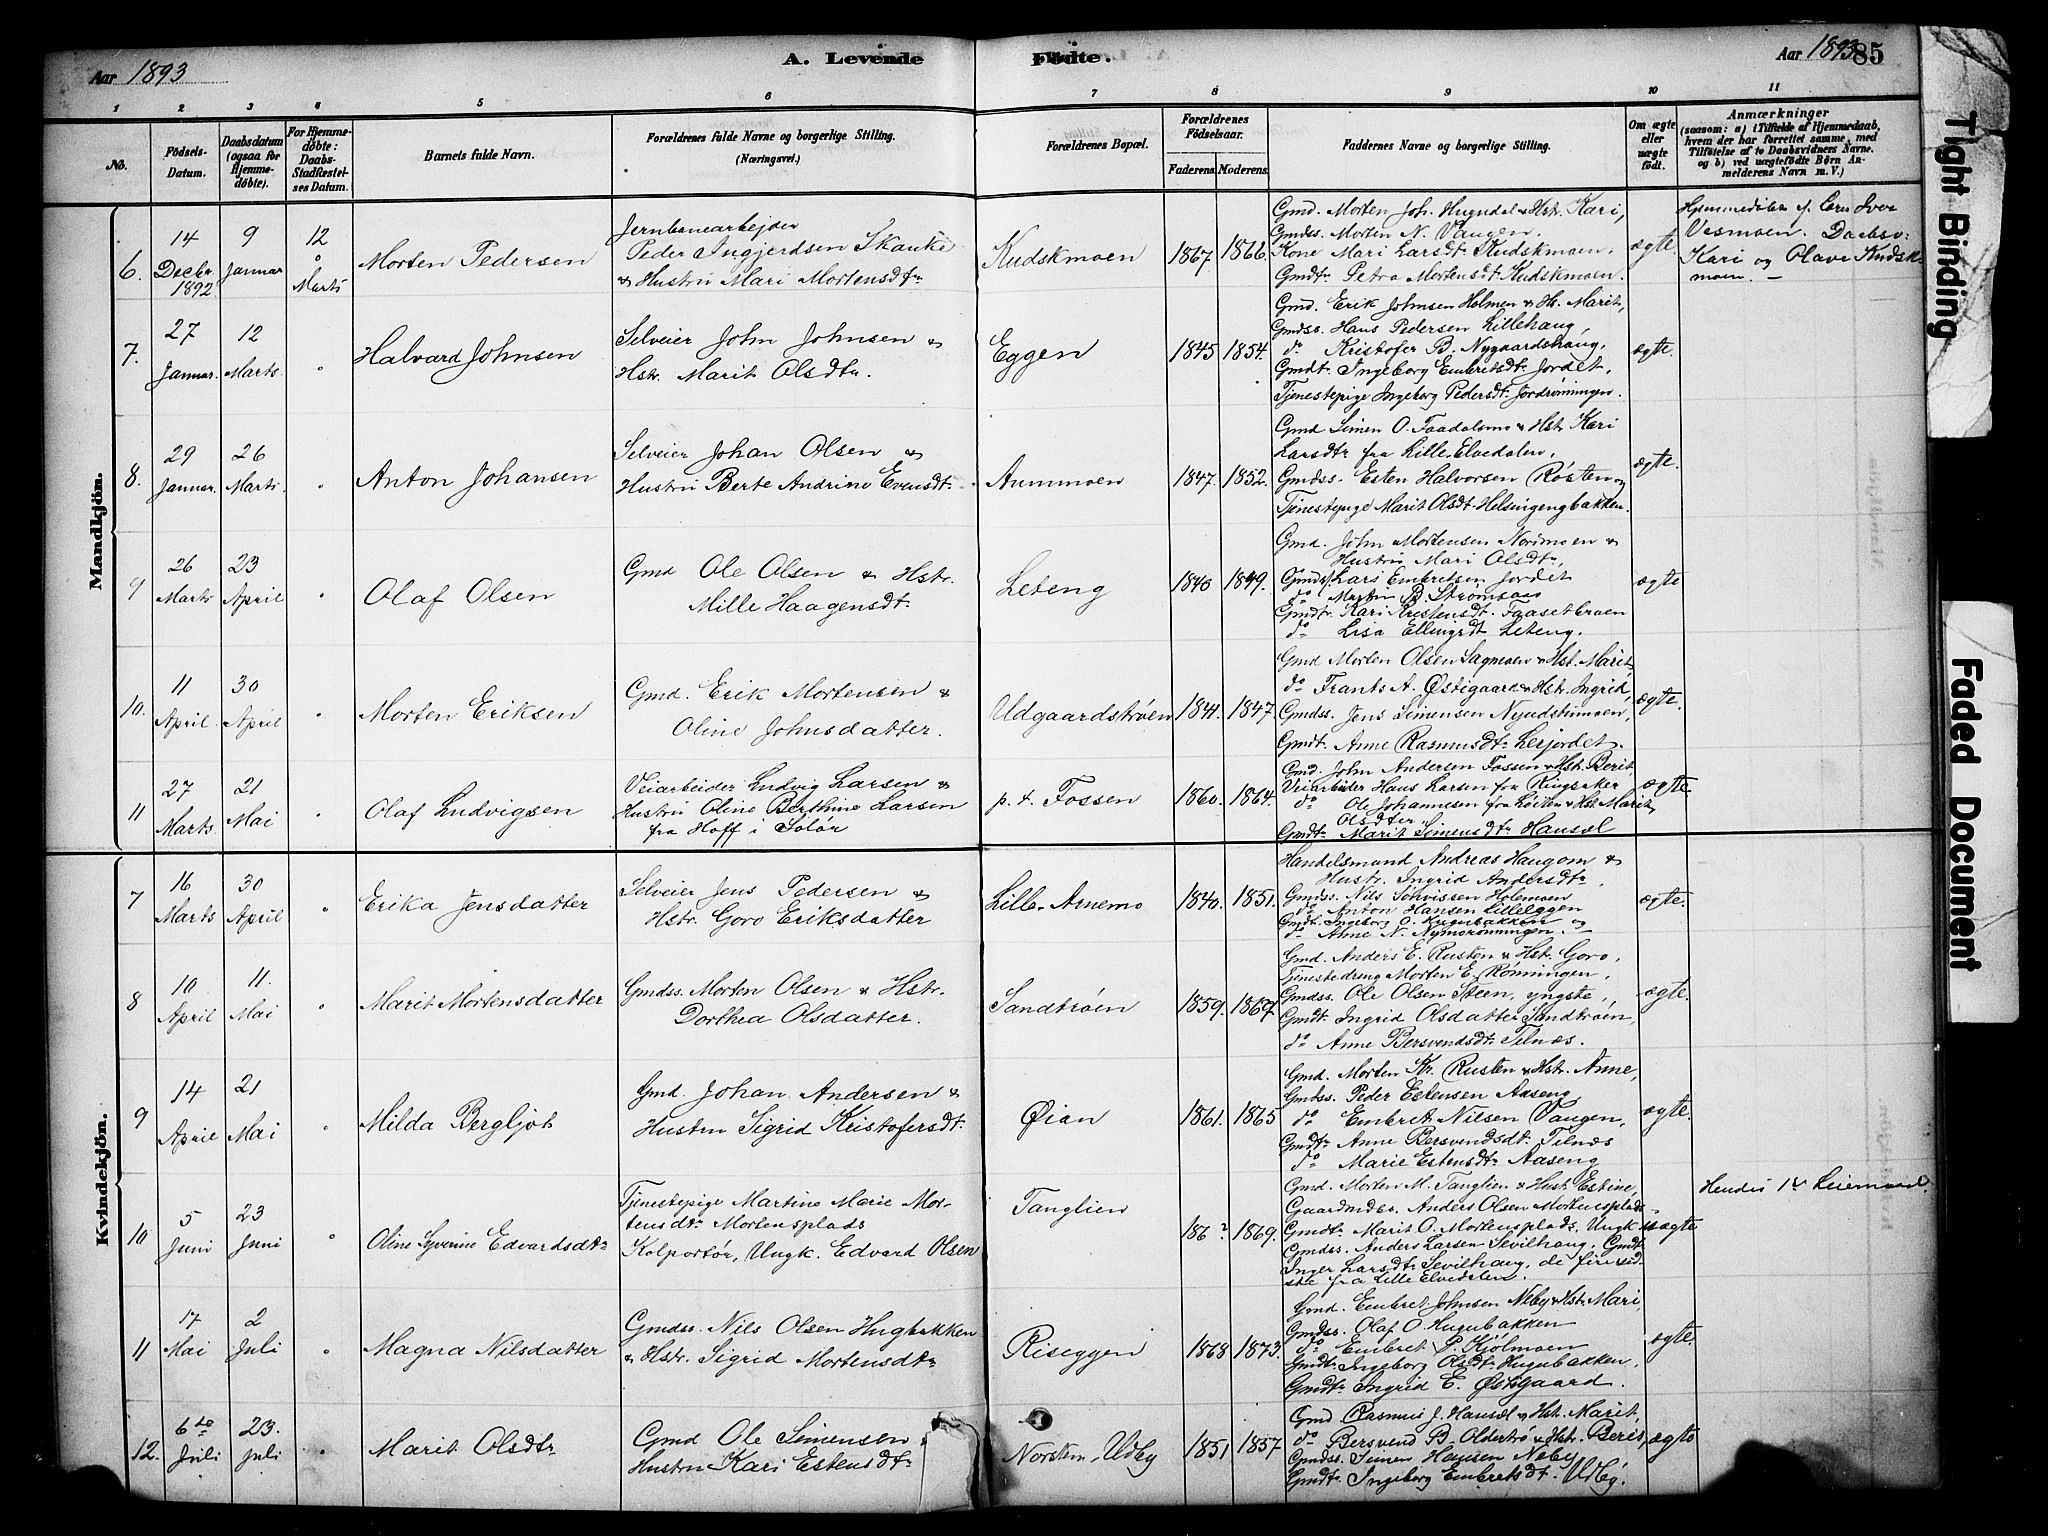 Aar 1893
A. Levende Födte.
Aar 1893
85
1 2 3 4 5 6 7 8 9 10 11
No.
Födsels-Datum.
Daabsdatum (ogsaa for Hjemmedøbte).
For Hjemmedøbte: Daabs-Stadfæstelses Datum.
Barnets fulde Navn.
Forældrenes fulde Navne og borgerlige Stilling.
(Næringsvei.)
Forældrenes Bopæl.
Forældrenes Födselsaar.
Faderens. Moderens.
Faddernes Navne og borgerlige Stilling.
Om ægte eller uægte födt.
Anmærkninger
(saasom: a) i Tilfælde af Hjemmedaab,
hvem der har forrettet samme, med
Tilføielse af to Daabsvidners Navne.
og b) ved uægtefödte Børn Anmelderens Navn m. V.)
Mandkjön.
6. 14 Decbr. 1892
9 Januar
12 Marts
Morten Pedersen
Jernbanearbejder
Peder Ingjerdsen Skanke
& Hustru Mari Mortensdtr
Kudskmoen
1867. 1866.
Gmd. Morten Joh. Hugudal & Hstr. Kari,
Gmdss. Morten N. Vangen,
Kone Mari Larsdt. Kudskmoen.
Gmdtr. Petra Mortensdt. Kudskmoen.
ægte.
Vesmoen. Daabsv:
Kari og Olave Kudsk-
moen. —
7. 27 Januar.
12 Marts.
Halvard Johnsen
Selveier John Johnsen &
Hstr. Marit Olsdtr.
Eggen
1845 1854.
Gmd. Erik Johnsen Holmen & Hs. Marit,
Gmdss. Hans Pedersen Lillehaug,
do Kristofer B. Nygaardshaug,
Gmdtr. Ingeborg Embretsdtr Jordet,
Tjenestepige Ingeborg Pedersdt. Jordrønningen.
ægte.
8. 29 Januar.
26 Marts.
Anton Johansen
Selveier Johan Olsen &
Hustru Berte Andrine Evensdtr.
Aummoen
1847. 1852.
Gmd Simen O. Faadalsmo & Hstr. Kari
Larsdtr fra Lille Elvedalen,
Gmdss. Esten Halvorsen Røsten og
Tjenestepige Marit Olsdt. Helsingengbakken.
ægte.
9 26 Marts
23 April
Olaf Olsen
Gmd Ole Olsen & Hstr.
Mille Haagensdtr.
Leteng
1840 1849.
Gmd. John Mortensen Nordmoen &
Hustru Mari Olsdtr,
Gmdss. Lars Embretsen Jordet
do Martin B. Strømsaas
Gmdtr. Kari Kristensdt. Faasetbroen
do Lisa Ellingsdt Leteng.
ægte
10. 11 April.
30 April.
Morten Eriksen
Gmd. Erik Mortensen &
Oline Johnsdatter.
Udgaardstrøen
1841. 1847.
Gmd Morten Olsen Sagmoen & Hst. Marit,
do Frants A. Østigaard & Hstr. Ingrid,
Gmdss. Jens Simensen Nyudstumoen,
Gmdtr. Anne Rasmusdtr Lerjordet.
ægte.
11 27 Marts
21 Mai
Olaf Ludvigsen
Veiarbeider Ludvig Larsen &
Hustru Oline Berthine Larsen
fra Hoff i Solør
p. t. Fossen
1860. 1864.
Gmd. John Andersen Fossen & Hst. Berit,
Veiarbeider Hans Larsen fra Ringsaker
do Ole Johannesen fra Løiten & Hst. Marit
Olsdter
Gmdtr. Marit Simensdtr Hansæl
ægte.
Kvindekjön.
7 16 Marts
30 April
Erika Jensdatter
Selveier Jens Pedersen &
Hstr. Goro Eriksdatter
Lille-Arnemo
1840. 1851.
Handelsmand Andreas Haugom &
Hustr. Ingrid Andersdtr,
Gmdss. Nils Solvissen Holemoen
do Anton Hansen Lilleeggen
Gmdt. Ingeborg O. Hugubakken og
do Anne N. Nymorønningen. —
ægte.
8 10 April
11. Mai
Marit Mortensdatter
Gmdss. Morten Olsen & Hstr.
Dorthea Olsdatter.
Sandtrøen
1859. 1867
Gmd. Anders E. Rusten & Hst. Goro,
Tjenestedreng Morten E. Rønningen,
Gmdss. Ole Olsen Steen, yngste,
Gmdt. Ingrid Olsdatter Sandtrøen,
do Anne Bersvendsdt. Telnæs.
ægte.
9 14 April
21 Mai
Milda Bergljot
Gmd Johan Andersen &
Hustru Sigrid Kristofersdt.
Øian
1861. 1865
Gmd. Morten Kr. Rusten & Hstr. Anne,
Gmdss. Peder Estensen Aaseng
do Embret Nilsen Vangen,
Gmdtr. Anne Bersvendsdt. Telnæs
do Marie Estensdtr Aaseng
ægte.
10 5 Juni
23 Juni
Oline Syverine Edvardsdtr
Tjenestepige Martine Marie Mor-
tensdtr Mortensplads
Kolportør, Ungk. Edvard Olsen
Tanglien
186? 1869.
Gmd. Morten M. Tanglien & Hust. Estine,
Gaardmdss. Anders Olsen Mortensplads,
Gmdtr. Marit O. Mortensplads, Ungk.
Gmdss. Anders Larsen Sevilhaug. Gmdt.
Inger Larsdt. Sevilhaug, de fire sid-
ste fra Lille Elvedalen.
uægte
Hendes 1ste Leiermaal.
11 17 Mai
2 Juli
Magna Nilsdatter
Gmdss. Nils Olsen Hugbakken
& Hstr. Sigrid Mortensdtr
Riseggen
1868 1873.
Gmd. Embret Johnsen Neby & Hst. Mari,
Gmdss. Olaf O. Hugubakken
do Embret P. Kjølmoen
Gmdtr Ingeborg Olsdt. Hugubakken.
Gmdtr Ingrid E. Østgaard.
ægte.
12. 6te Juli
23. Juli
Marit Olsdtr
Gmd Ole Simensen &
Hustru Kari Estensdtr
Norsten, Udby
1851 1857
Gmd Rasmus J. Hansæl & Hst. Marit,
do Bersvend B. Oldertrø & Hstr. Berit,
Gmdss. Simen Hansen Neby
Gmdtr Ingeborg Embretsdt. Udby.
ægte
Tight Binding
Faded Document